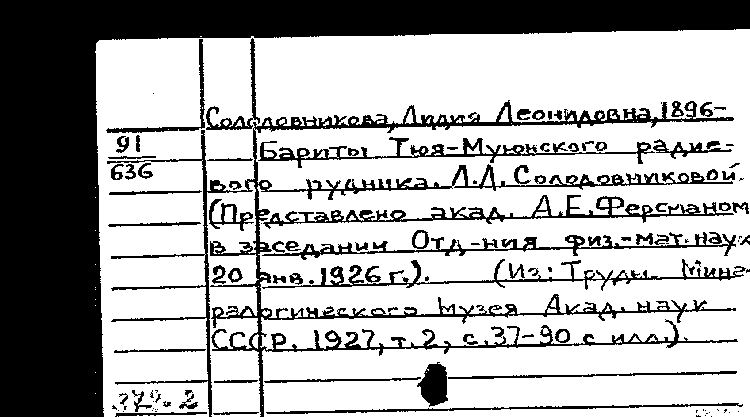 Солодовникова, Лидия Леонидовна, 1896-
91
636
Бариты Тюя-Муюнского радие-
вого рудника. Л.Л. Солодовниковой.
(Представлено акад. А.Е. Ферсманом
в заседании Отд-ния физ.-мат. наук
20 янв. 1926 г.). (Из: Труды Мине-
ралогического Музея Акад. наук
СССР. 1927, т. 2, с. 37-90 с илл.).